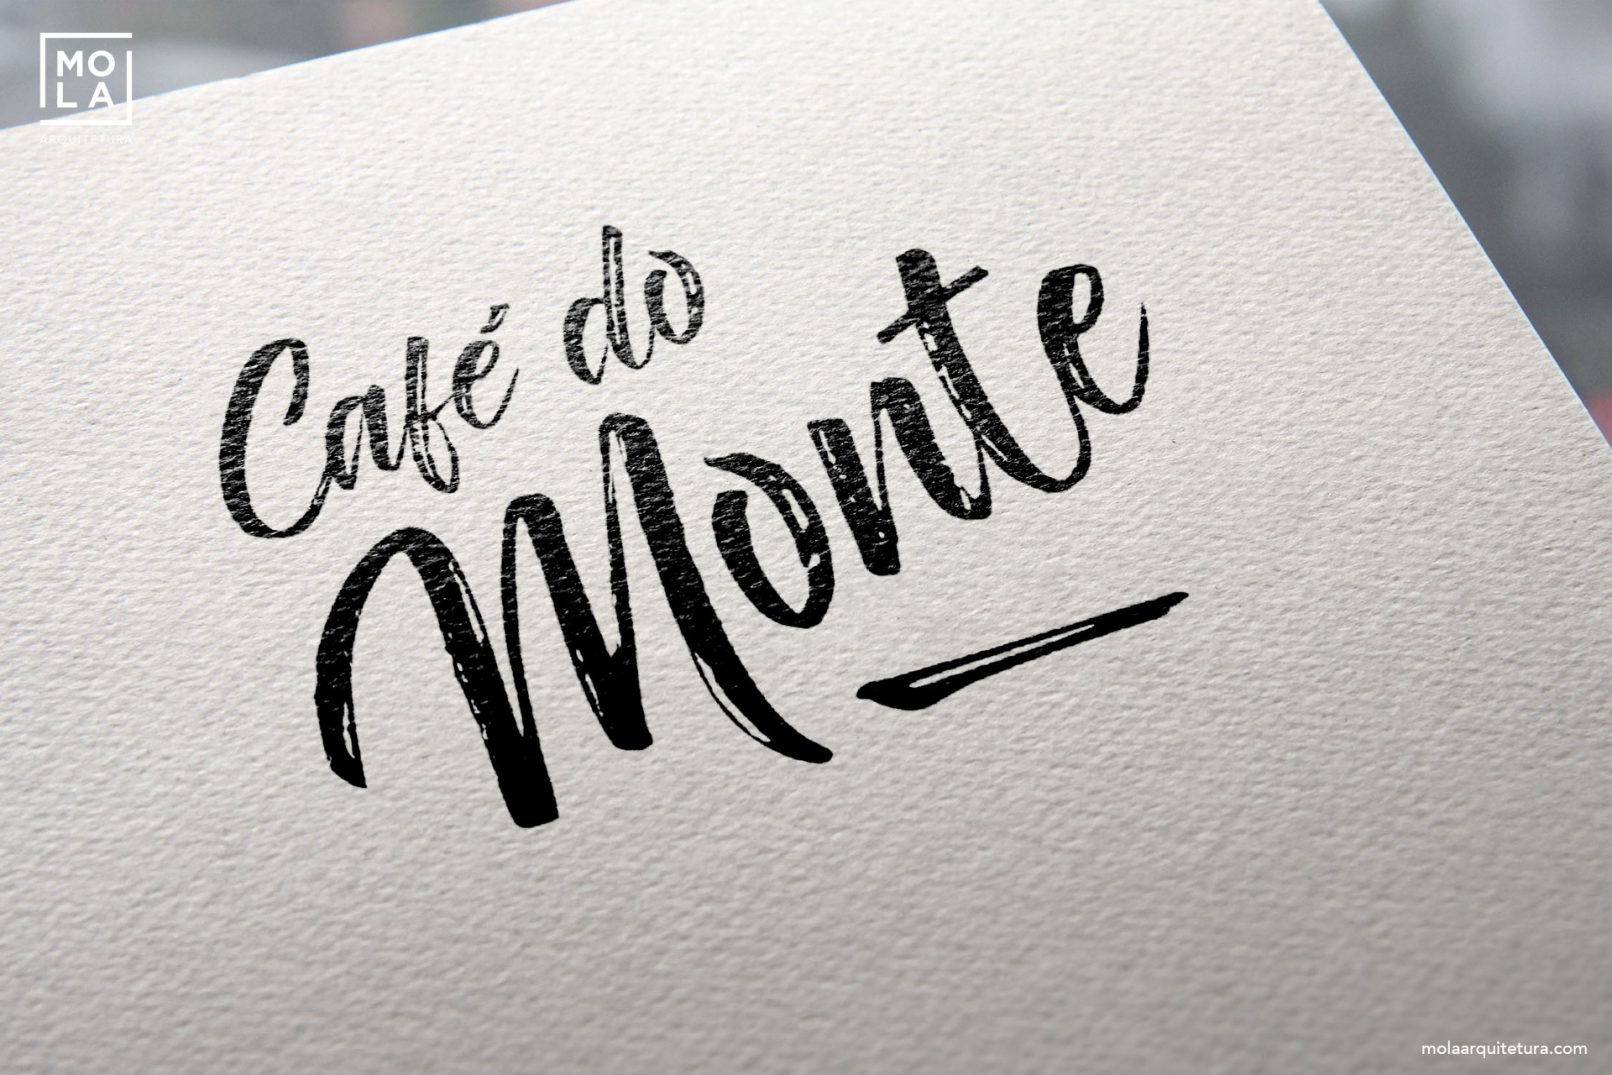 MO
LA
ARQUITETURA
Café do
Monte
molaarquitetura.com